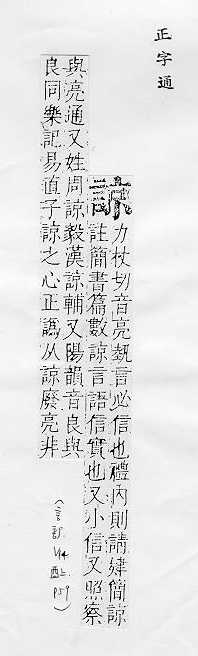 正字通
諒
力杖切音亮埶言必信也禮内則請肄簡諒
註簡書篇數諒言語信實也又小信又照察
與亮通又姓周諒毅漢諒輔又陽韻音良與
良同樂記易直子諒之心正譌从諒廢亮非
(言部 酉上 P59)